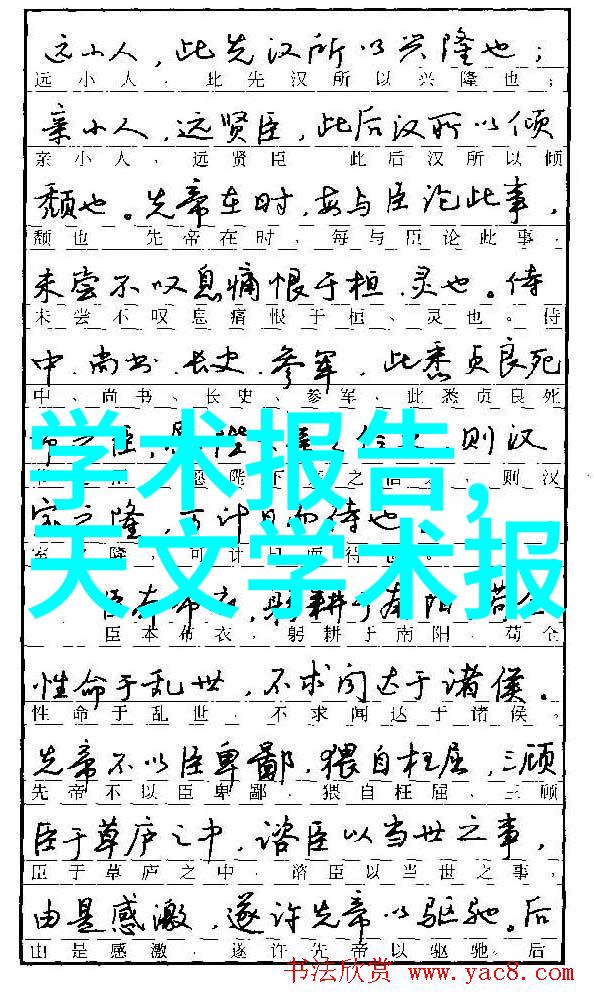 远小人，此先汉所以兴隆也；
远小人，此先汉所以兴隆也；
亲小人，远贤臣，此后汉所以倾
亲小人，远贤臣　此后汉所以倾
颓也。先帝在时，每与臣论此事，
颓也　先帝在时，每与臣论此事，
未尝不叹息痛恨于桓、灵也。侍
未尝不叹息痛恨于桓、灵也。侍
中、尚书、长史、参军，此悉贞良死
中、尚书、长史、参军、此悉贞良死
则汉
之　则汉
学术报告,
之隆，可计日而待也
室　隆，可计日而待
天文学术报
臣本布衣，躬耕于南阳　苟全
臣本布衣，躬耕于南阳，苟全
性命于乱世，不求闻达于诸侯。
性命于乱世，不求闻达于诸侯。
先帝不以臣卑鄙，猥自枉屈，三顾
先帝不以臣卑鄙，猥自枉屈、三顾
臣于草庐之中，谘臣以当世之事，
臣于草庐之中，谘臣以当世之事，
由是感激，遂许先帝以驱驰。后
由是感激，遂许先帝以驱驰。后
书法欣赏 www.yac8.com